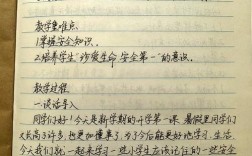 教学重难点
1.掌握安全知识.
2.培养学生"珍爱生命 安全第一"的意识.
教学过程
一、谈话导入
同学们好!今天是新学期的开学第一课,暑假里同学们
又长高了许多,也更加懂事了,为了今后能更好地学习、生活,
今天我们就一起来学习一些小学生应该记住的一些安